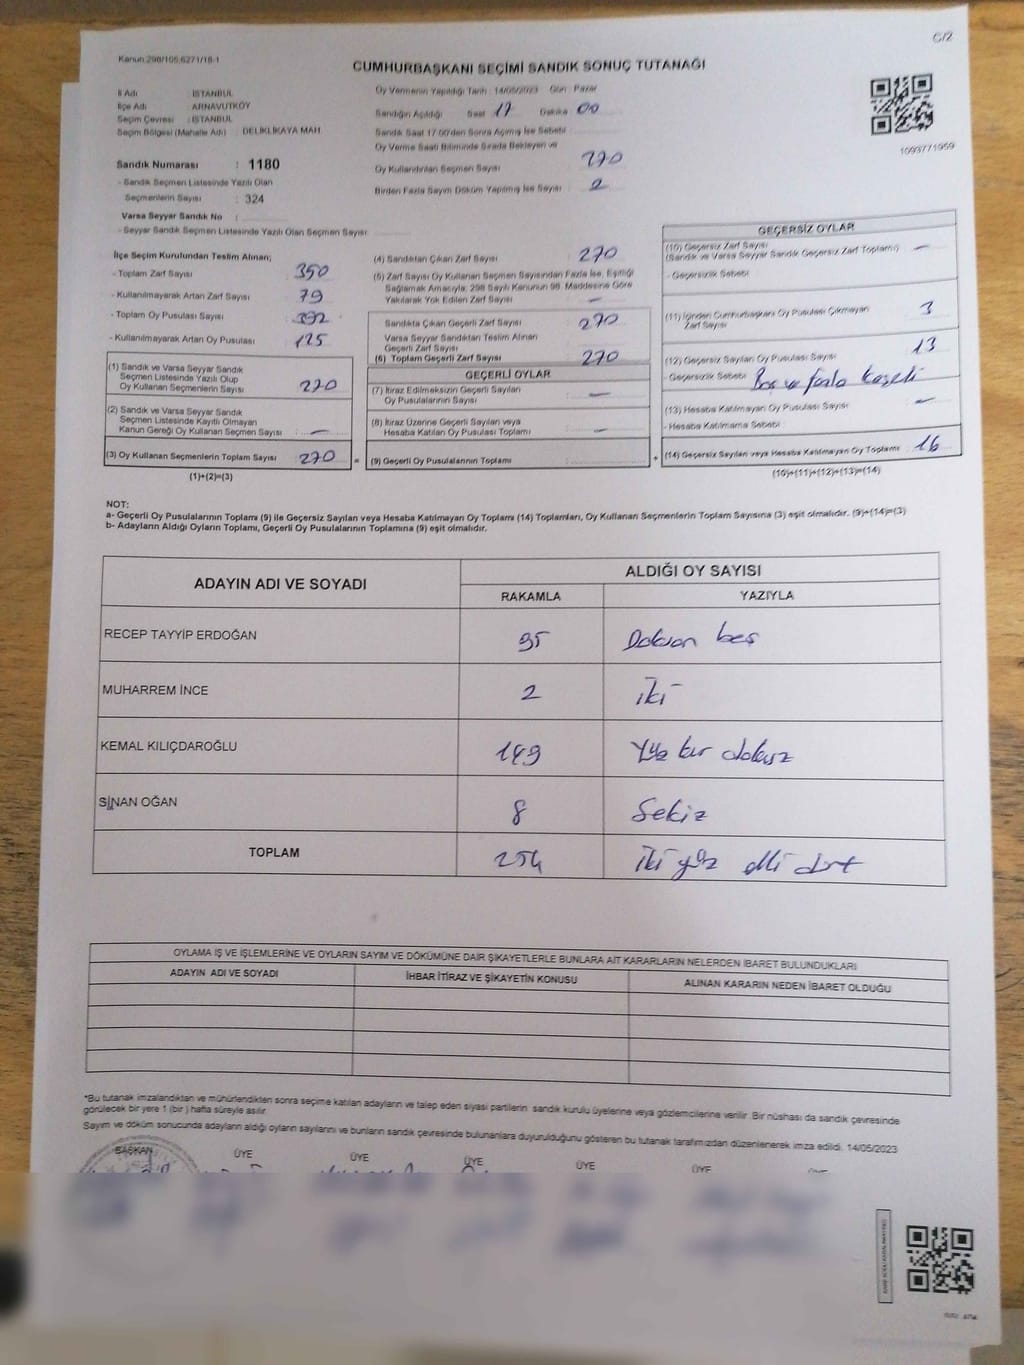 C/2
Kanun:298/105,6271/18-1
CUMHURBAŞKANI SEÇİMİ SANDIK SONUÇ TUTANAĞI
İl Adı : İSTANBUL
İlçe Adı : ARNAVUTKÖY
Seçim Çevresi : İSTANBUL
Seçim Bölgesi (Mahalle Adı) : DELİKLİKAYA MAH.
Sandık Numarası : 1180
- Sandık Seçmen Listesinde Yazılı Olan
Seçmenlerin Sayısı : 324
Varsa Seyyar Sandık No :
- Seyyar Sandık Seçmen Listesinde Yazılı Olan Seçmen Sayısı:
Oy Vermenin Yapıldığı Tarih : 14/05/2023 Gün : Pazar
Sandığın Açıldığı Saat : 17 Dakika : 00
Sandık Saat 17.00'den Sonra Açılmış İse Sebebi :
Oy Verme Saati Bitiminde Sırada Bekleyen ve
Oy Kullandırılan Seçmen Sayısı : 270
Birden Fazla Sayım Döküm Yapılmış İse Sayısı : 2
1093771959
İlçe Seçim Kurulundan Teslim Alınan;
- Toplam Zarf Sayısı : 350
- Kullanılmayarak Artan Zarf Sayısı : 79
- Toplam Oy Pusulası Sayısı : 392
- Kullanılmayarak Artan Oy Pusulası : 125
(1) Sandık ve Varsa Seyyar Sandık
Seçmen Listesinde Yazılı Olup
Oy Kullanan Seçmenlerin Sayısı : 270
(2) Sandık ve Varsa Seyyar Sandık
Seçmen Listesinde Kayıtlı Olmayan
Kanun Gereği Oy Kullanan Seçmen Sayısı : —
(3) Oy Kullanan Seçmenlerin Toplam Sayısı : 270 =
(1)+(2)=(3)
(4) Sandıktan Çıkan Zarf Sayısı : 270
(5) Zarf Sayısı Oy Kullanan Seçmen Sayısından Fazla İse, Eşitliği
Sağlamak Amacıyla; 298 Sayılı Kanunun 98. Maddesine Göre
Yakılarak Yok Edilen Zarf Sayısı : —
Sandıkta Çıkan Geçerli Zarf Sayısı : 270
Varsa Seyyar Sandıktan Teslim Alınan
Geçerli Zarf Sayısı :
(6) Toplam Geçerli Zarf Sayısı : 270
GEÇERLİ OYLAR
(7) İtiraz Edilmeksizin Geçerli Sayılan
Oy Pusulalarının Sayısı : —
(8) İtiraz Üzerine Geçerli Sayılan veya
Hesaba Katılan Oy Pusulası Toplamı : —
(9) Geçerli Oy Pusulalarının Toplamı : +
GEÇERSİZ OYLAR
(10) Geçersiz Zarf Sayısı : —
(Sandık ve Varsa Seyyar Sandık Geçersiz Zarf Toplamı)
- Geçersizlik Sebebi :
(11) İçinden Cumhurbaşkanı Oy Pusulası Çıkmayan : 3
Zarf Sayısı
(12) Geçersiz Sayılan Oy Pusulası Sayısı : 13
- Geçersizlik Sebebi : Boş ve fazla kaşeli
(13) Hesaba Katılmayan Oy Pusulası Sayısı : —
- Hesaba Katılmama Sebebi :
(14) Geçersiz Sayılan veya Hesaba Katılmayan Oy Toplamı : 16
(10)+(11)+(12)+(13)=(14)
NOT:
a- Geçerli Oy Pusulalarının Toplamı (9) ile Geçersiz Sayılan veya Hesaba Katılmayan Oy Toplamı (14) Toplamları, Oy Kullanan Seçmenlerin Toplam Sayısına (3) eşit olmalıdır. (9)+(14)=(3)
b- Adayların Aldığı Oyların Toplamı, Geçerli Oy Pusulalarının Toplamına (9) eşit olmalıdır.
ADAYIN ADI VE SOYADI ALDIĞI OY SAYISI
RAKAMLA YAZIYLA
RECEP TAYYİP ERDOĞAN 95 Doksan beş
MUHARREM İNCE 2 iki
KEMAL KILIÇDAROĞLU 149 Yüz kır dokuz
SİNAN OĞAN 8 Sekiz
TOPLAM 254 iki yüz elli dört
OYLAMA İŞ VE İŞLEMLERİNE VE OYLARIN SAYIM VE DÖKÜMÜNE DAİR ŞİKAYETLERLE BUNLARA AİT KARARLARIN NELERDEN İBARET BULUNDUKLARI
ADAYIN ADI VE SOYADI İHBAR İTİRAZ VE ŞİKAYETİN KONUSU ALINAN KARARIN NEDEN İBARET OLDUĞU
*Bu tutanak imzalandıktan ve mühürlendikten sonra seçime katılan adayların ve talep eden siyasi partilerin sandık kurulu üyelerine veya gözlemcilerine verilir. Bir nüshası da sandık çevresinde
görülecek bir yere 1 (bir ) hafta süreyle asılır.
Sayım ve döküm sonucunda adayların aldığı oyların sayılarını ve bunların sandık çevresinde bulunanlara duyurulduğunu gösteren bu tutanak tarafımızdan düzenlenerek imza edildi. 14/05/2023
BAŞKAN ÜYE ÜYE ÜYE ÜYE ÜYE ÜYE